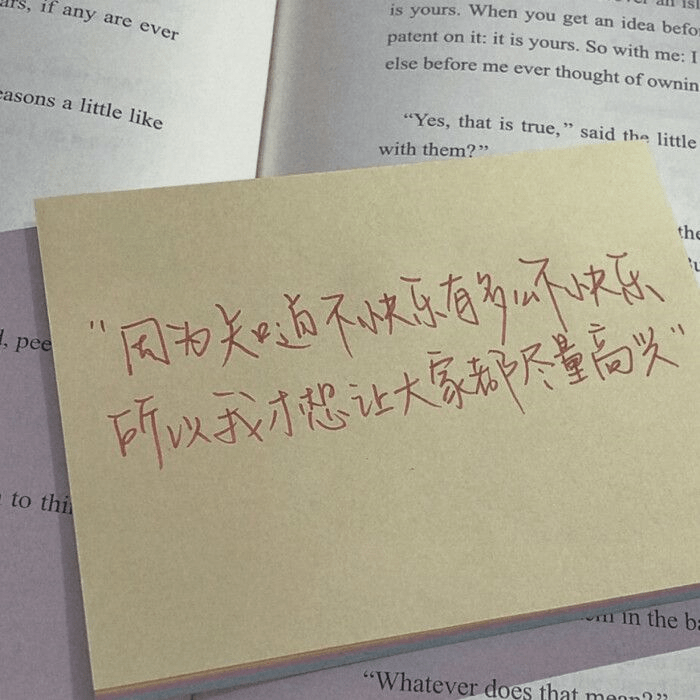 ars, if any are ever
easons a little like
is yours. When you get an idea befo
patent on it: it is yours. So with me: I
else before me ever thought of ownin
“Yes, that is true,” said the little
with them?”
the
“因为知道不快乐有多么不快乐
所以我才想让大家都尽量高兴”
, pee
to thi
in the ba
“Whatever does that mean?”